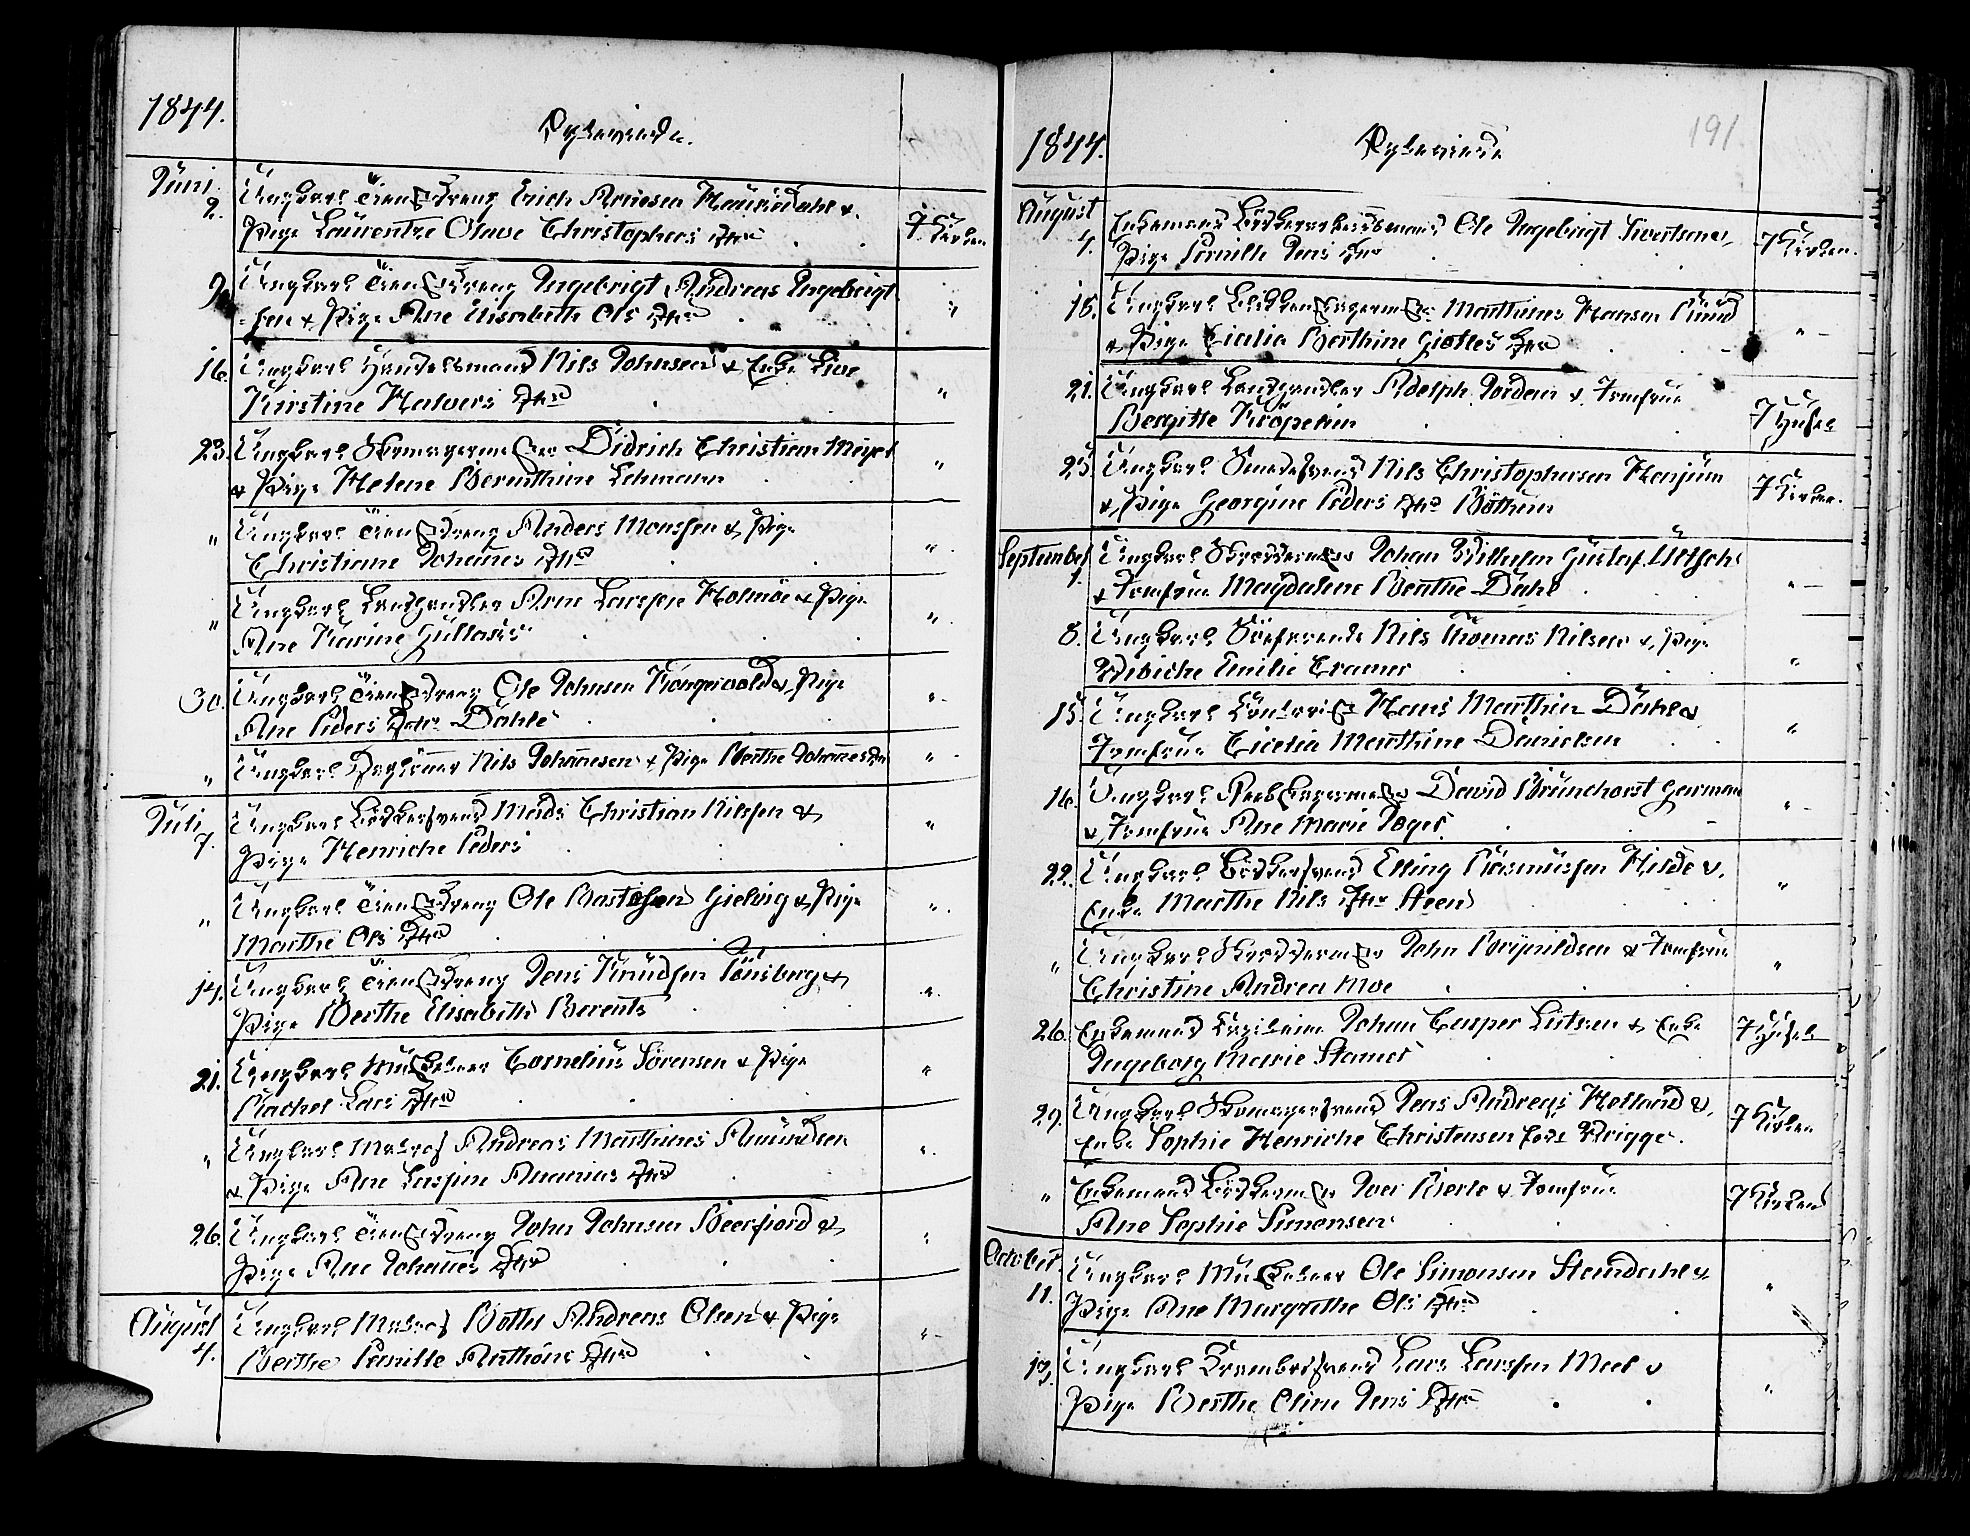 1844.
Egteviede.
Juni
2. Ungkarl Tienstdreng Erich Arnesen Hauridahl &
Pige Laurentze Oluve Christophers Dtr
I Kirken
9. Ungkarl Tienstdreng Ingebrigt Andreas Ingebrigt
sen & Pige Ane Elisabeth Ols Dtr
"
16. Ungkarl Handelsmand Nils Johnsen & Enke Live
Kirstine Halvors Dtr
"
23. Ungkarl Skomagermester Didrich Christian Meyer
& Pige Helene Berenthine Lehmann
"
" Ungkarl Tienstdreng Anders Monssen & Pige
Christiane Johannes Dtr
"
" Ungkarl Landhandler Arne Larssen Holmøe & Pige
Ane Karine Gullachs
"
30. Ungkarl Tienstdreng Ole Johnsen Kongsvold & Pige
Ane Peders Datr Dahle
"
" Ungkarl Dagleier Nils Johannesen & Pige Berthe Johannesdtr
"
Juli
7. Ungkarl Bødkersvend Mads Christian Nilssen &
Pige Henriche Peders
"
" Ungkarl Tienstdreng Ole Bastesen Gielvig & Pige
Marthe Ols Dtr
"
14. Ungkarl Tienstdreng Jens Knudsen Tønsberg &
Pige Berthe Elisabeth Berents
"
21. Ungkarl Cornelius Sørensen & Pige
Rachel Lars Dtr
"
" Ungkarl Matros Andreas Mathines Amundsen
& Pige Ane Ananias Dtr
"
26. Ungkarl Tienstdreng John Johnsen &
Pige Ane Johannes Dtr
"
August
4. Ungkarl Matros Andreas Olsen & Pige
Berthe Pernille Anthons Dtr
"
1844.
Egteviede
191
August
4. Enkemand Ole Ingebrigt Sivertsen &
Pige Pernille Jens Dtr
I Kirken.
18. Ungkarl Mathines Hansen Ruud
& Pige Cicilia Berthine Giotles Dtr
"
21. Ungkarl Landhandler Adolph Jordan & Jomfrue
Bergitte Krøpelin
I Huset
25. Ungkarl Smedesvend Nils Christophersen Henjum
& Pige Georgine Peders Dtr Bøthun
I Kirken.
September
1. Ungkarl Skrædermester Johan Wilhelm Gustaf
& Jomfrue Magdalene Benthe Dahl
"
8. Ungkarl Søefarende Nils Thomas Nilsen & Pige
Wibiche Emilie Cramer
"
15. Ungkarl Hans Marthin Dahl &
Jomfrue Cicelia Marthine Danielsen
"
16. Ungkarl Rebslagermester David Brunchorst German
& Jomfrue Ane Marie Joger
"
22. Ungkarl Bødkersvend Elling Rasmussen Hilde &
Enke Marthe Nils Dtr Steen
"
" Ungkarl Skrædermester John Brynildsen & Jomfrue
Christine Andrea Moe
"
26. Enkemand Johan Casper Lutzen & Enke
Ingeborg Marie Stamer
I Huset
29. Ungkarl Skomagersvend Jens Andreas Holland &
Enke Sophie Henriche Christensen født Brigge.
I Kirken
" Enkemand Bødkermester Iver Bierk & Jomfrue
Ane Sophie Simonsen
I Kirken
October
11. Ungkarl Ole Simonsen Steindahl &
Pige Ane Margrethe Ols Dtr
"
13. Ungkarl Lars Larssen Meel &
Pige Berthe Oline Jens Dtr
"